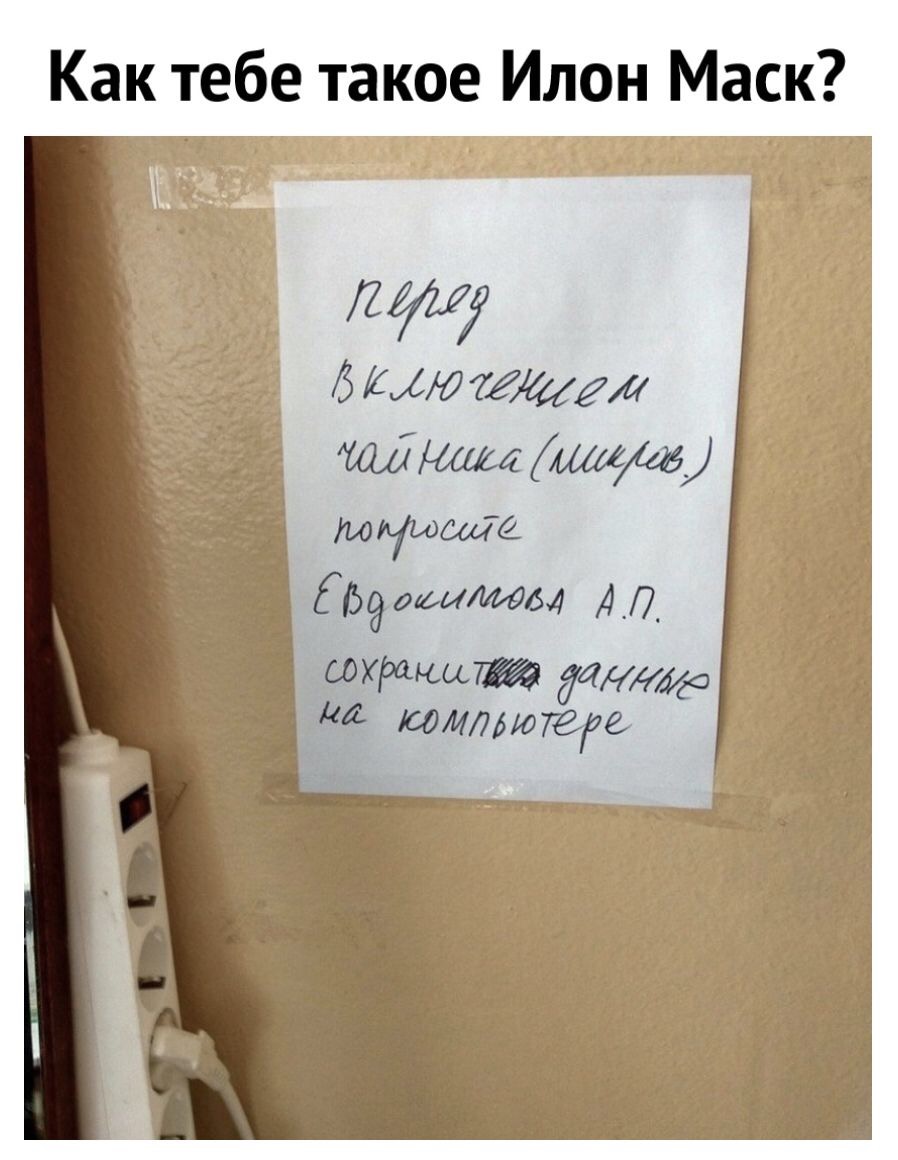 Как тебе такое Илон Маск?
перед
включением
чайника (микров.)
попросите
Евдокимова А.П.
сохранит данные
на компьютере